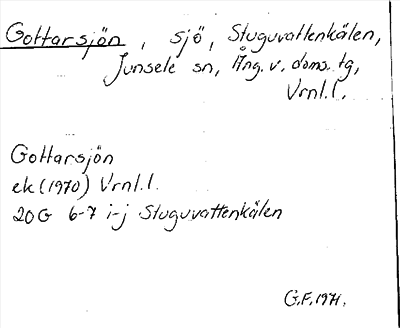 Gottarsjön, sjö, Stuguvattenkälen,
Junsele sn, Ång. v. doms. tg,
Vrnl. l.
Gottarsjön
ek (1970) Vrnl. l.
20G 6-7 i-j Stuguvattenkälen
G.F. 1971.